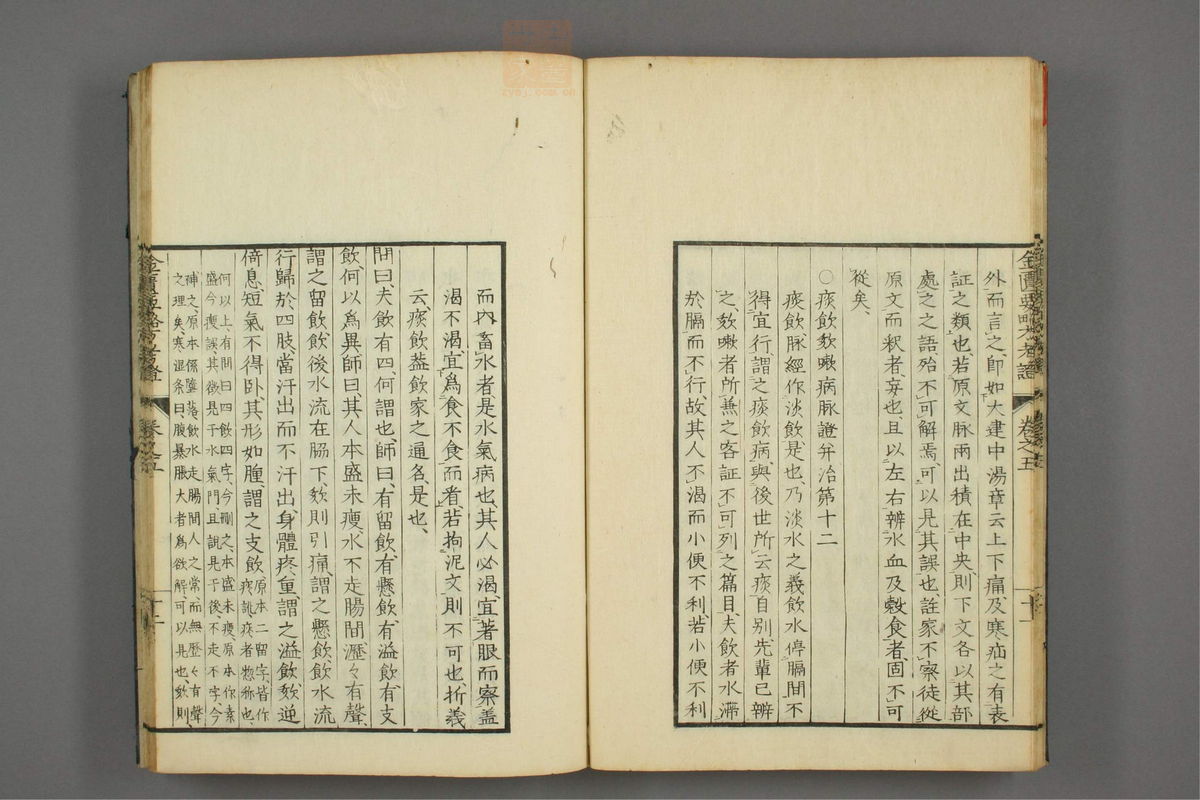 外而言之即如大建中湯章云上下痛及寒疝之有表
証之類也、若原文脉兩出積在中央則下文各以其部
處之之語殆不可解焉、可以見其誤也、詮家不察徒從
原文而釈者、妄也、且以左右辨水血及穀食者、固不可
從矣、
〇痰飲欬嗽病脉證并治第十二
痰飲、脉經作淡飲是也、乃淡水之義飲水停膈間不
得宜行、謂之痰飲病、與後世所云痰自別、先輩已辨
之、欬嗽者所兼之客証不可列之篇目、夫飲者水滯
於膈而不行、故其人不渴而小便不利、若小便不利
而内畜水者、是水氣病也、其人必渴、宜著眼而察、蓋
渴不渴、宜爲食不食而看、若拘泥文則不可也、折義
云、痰飲蓋飲家之通名、是也、
問曰、夫飲有四、何謂也、師曰、有留飲、有懸飲、有溢飲、有支
飲、何以爲異、師曰、其人本盛未瘦、水不走腸間、瀝々有聲、
謂之留飲、飲後水流在脇下、欬則引痛、謂之懸飲、飲水流
行、歸於四肢、當汗出而不汗出、身體疼重、謂之溢飲、欬逆
倚息、短氣不得卧、其形如腫、謂之支飲 原本二留字、皆作
痰訛、痰者惣称也、
何以上、有問曰四飲四字、今刪之、本盛未瘦、原本作素
盛今瘦誤、其徴見于水氣門、且說見于後、不走不字、今
補之、原本係墮落、飲水走腸間、人之常而無歷々有聲
之理矣、寒湿条曰、腹暴脹大者爲欲解、可以見也、欬則
金匱要略方考證
卷之五
十二
金匱要略方考證
卷之五
zyqj.com.cn